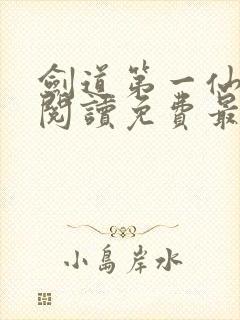 劍道第一仙
閱讀免費最
小島岸水